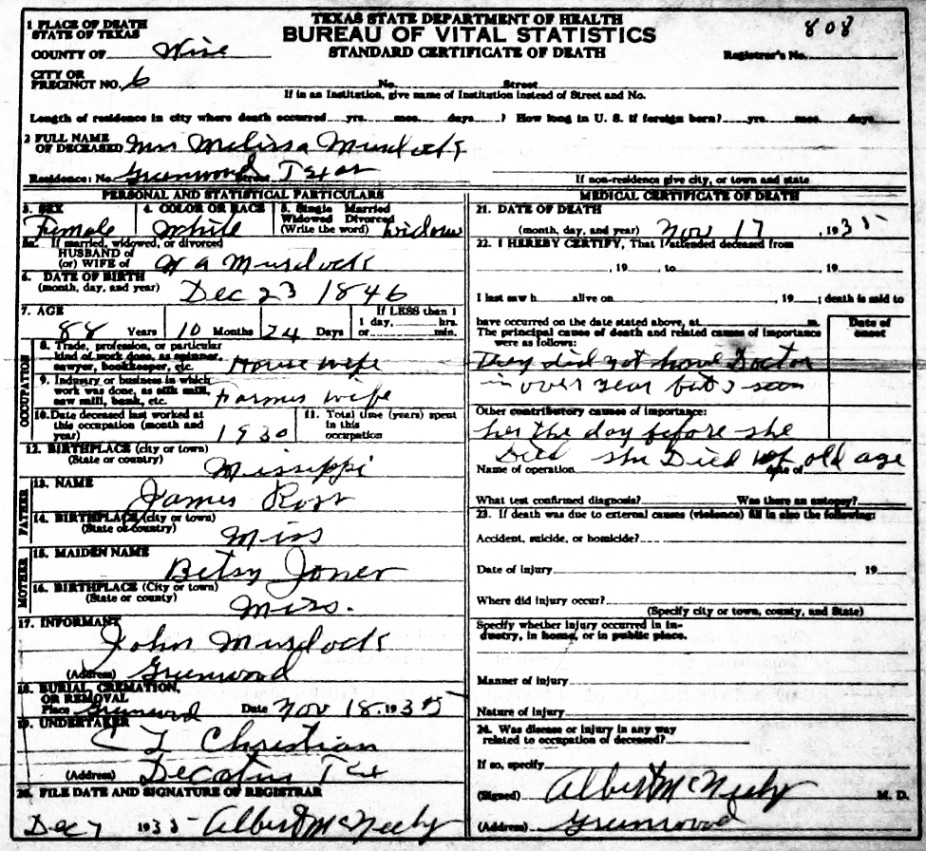 TEXAS STATE DEPARTMENT OF HEALTH
BUREAU OF VITAL STATISTICS
STANDARD CERTIFICATE OF DEATH
808
Registrar's No.
1 PLACE OF DEATH
STATE OF TEXAS
COUNTY OF Wise
CITY OR
PRECINCT NO. 6 No. Street
If in an Institution, give name of Institution instead of Street and No.
Length of residence in city where death occurred yrs. mos. days? How long in U. S. if foreign born? yrs. mos. days
2 FULL NAME
OF DECEASED Mrs Melissa Murdock
Residence: No. Greenwood Street Texas If non-residence give city, or town and state
PERSONAL AND STATISTICAL PARTICULARS
3. SEX 4. COLOR OR RACE 5. Single Married
Widowed Divorced
(Write the word) widow
Female White
5a. If married, widowed, or divorced
HUSBAND OF
(or) WIFE of W A Murdock
6. DATE OF BIRTH
(month, day, and year) Dec 23 1846
7. AGE If LESS than 1
1 day, hrs.
or min.
88 Years 10 Months 24 Days
OCCUPATION
8. Trade, profession, or particular
kind of work done, as spinner,
sawyer, bookkeeper, etc. House wife
9. Industry or business in which
work was done, as silk mill,
saw mill, bank, etc. Farmer wife
10. Date deceased last worked at
this occupation (month and
year) 1930
11. Total time (years) spent
in this
occupation
12. BIRTHPLACE (city or town)
(State or country) Missippi
FATHER
13. NAME James Ross
14. BIRTHPLACE (city or town)
(State or country) Miss
MOTHER
15. MAIDEN NAME Betsy Jones
16. BIRTHPLACE (City or town)
(State or county) Miss.
17. INFORMANT John Murdock
(Address) Greenwood
18. BURIAL, CREMATION,
OR REMOVAL
Place Greenwood Date Nov 18. 1935
19. UNDERTAKER C L Christian
(Address) Decatur Tex
20. FILE DATE AND SIGNATURE OF REGISTRAR
Dec 7 1935 Albert McNeely
MEDICAL CERTIFICATE OF DEATH
21. DATE OF DEATH
(month, day, and year) Nov 17, 1935
22. I HEREBY CERTIFY, That I attended deceased from
, 19 , to , 19
I last saw h alive on , 19 ; death is said to
have occurred on the date stated above, at m.
The principal cause of death and related causes of importance
were as follows:
Date of
onset
They did not have Doctor
in over year but I seen
Other contributory causes of importance:
her the day before she
Died she Died of old age
Name of operation date of
What test confirmed diagnosis? Was there an autopsy?
23. If death was due to external causes (violence) fill in also the following:
Accident, suicide, or homicide?
Date of injury , 19
Where did injury occur?
(Specify city or town, county, and State)
Specify whether injury occurred in in-
dustry, in home, or in public place.
Manner of injury
Nature of injury
24. Was disease or injury in any way
related to occupation of deceased?
If so, specify
(Signed) Albert McNeely M. D.
(Address) Greenwood